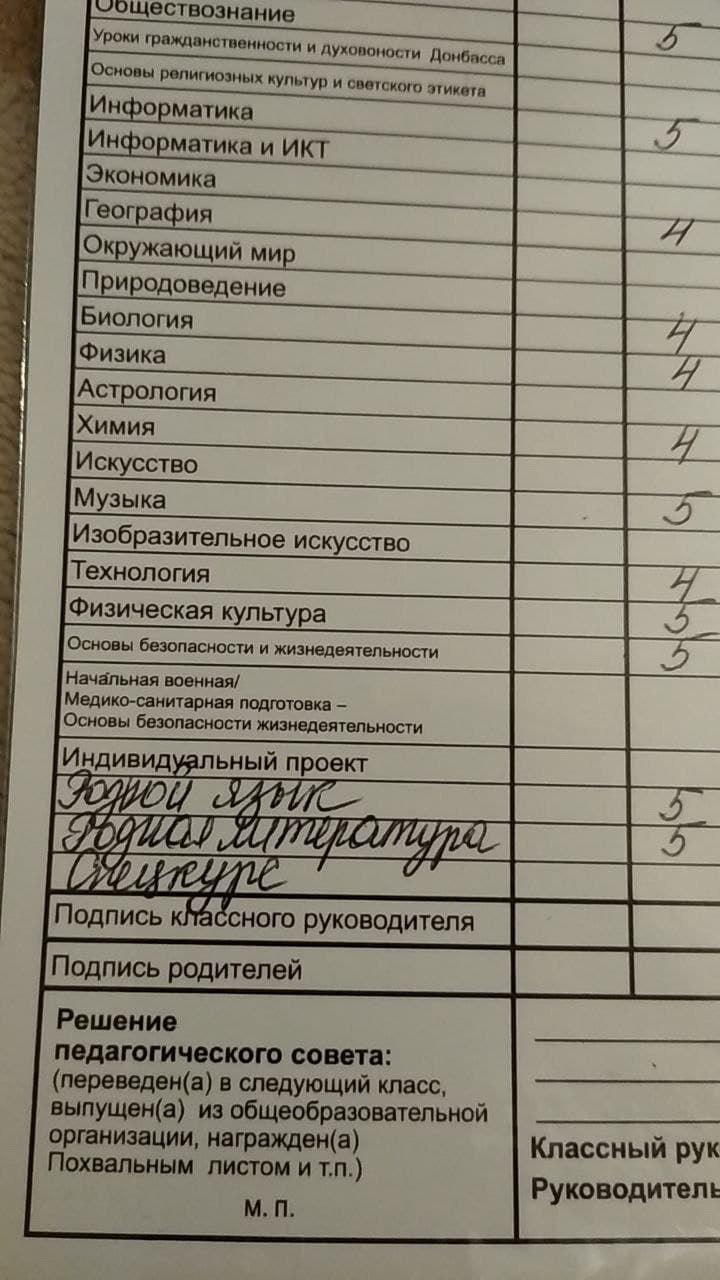 Обществознание
Уроки гражданственности и духовоности Донбасса 5
Основы религиозных культур и светского этикета
Информатика 5
Информатика и ИКТ
Экономика
География 4
Окружающий мир
Природоведение
Биология 4
Физика 4
Астрология
Химия 4
Искусство
Музыка 5
Изобразительное искусство
Технология 4
Физическая культура 5
Основы безопасности и жизнедеятельности 5
Начальная военная/
Медико-санитарная подготовка –
Основы безопасности жизнедеятельности
Индивидуальный проект
Родной язык 5
Родная литература 5
Спецкурс
Подпись классного руководителя
Подпись родителей
Решение
педагогического совета:
(переведен(а) в следующий класс,
выпущен(а) из общеобразовательной
организации, награжден(а)
Похвальным листом и т.п.)
М. П.
Классный рук
Руководитель